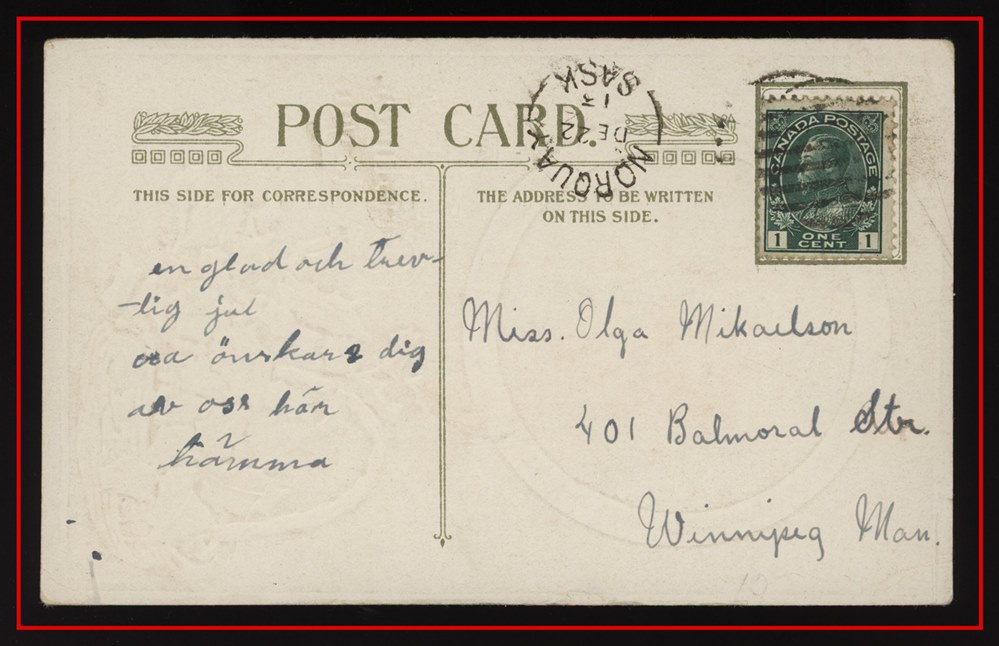 POST CARD.
THIS SIDE FOR CORRESPONDENCE.
THE ADDRESS TO BE WRITTEN
ON THIS SIDE.
NORQUAY
SASK
DE 22
CANADA POSTAGE
1 ONE CENT 1
en glad och trev-
lig jul
önskar dig
av oss här
hämma
Miss. Olga Mikaelson
401 Balmoral Str.
Winnipeg Man.